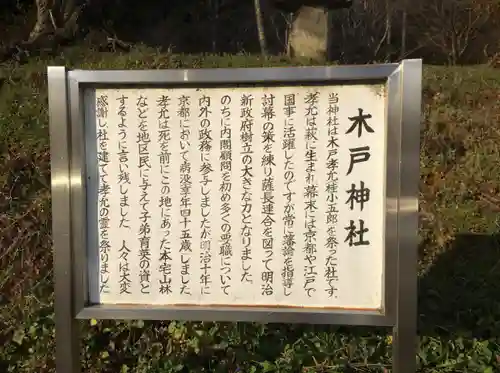 木戸神社
当神社は木戸孝允種小五郎を祭った社です
孝允は萩に生まれ幕末には京都や江戸で
国事に活躍したのですが常に藩論を指導し
討幕の策を練り薩長連合を図って明治
新政府樹立の大きな力となりました
のちに内閣顧問を初め多くの要職について
内外の政務に参与しましたが明治十年に
京都において病没享年四十五歳でした
孝允は死を前にこの地にあった本宅山林
などを地区民に与えて子弟育英の資と
するように言い残しました 人々は大変
感謝し社を建てて孝允の霊を祭りました